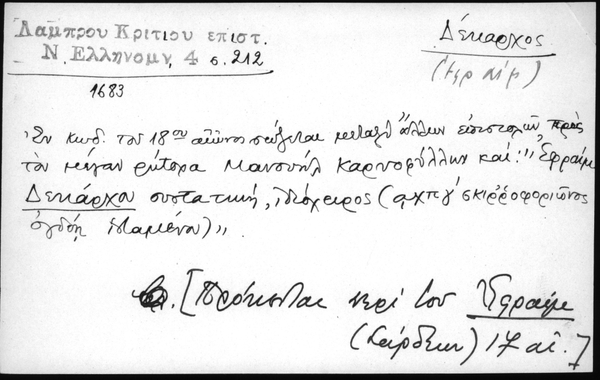 Λάμπρου Κριτίου επιστ.
Ν. Ελληνομν, 4 σ. 212
Δέκαρχος
(Εφραίμ)
1683
"Ἐν κώδ. τοῦ 18ου αἰῶνος σώζεται μεταξὺ ἄλλων ἐπιστολῶν πρὸς
τὸν μέγαν ρήτορα Μανουὴλ Καρυοφύλλην καί: "Ἐφραὶμ
Δεκάρχου συστατική, ἰδιόχειρος (αχπγʹ σκιρροφοριῶνος
ὀγδόῃ ἱσταμένου)".
[Πρόκειται περὶ τοῦ Ἐφραὶμ
) 17 αἰ.]